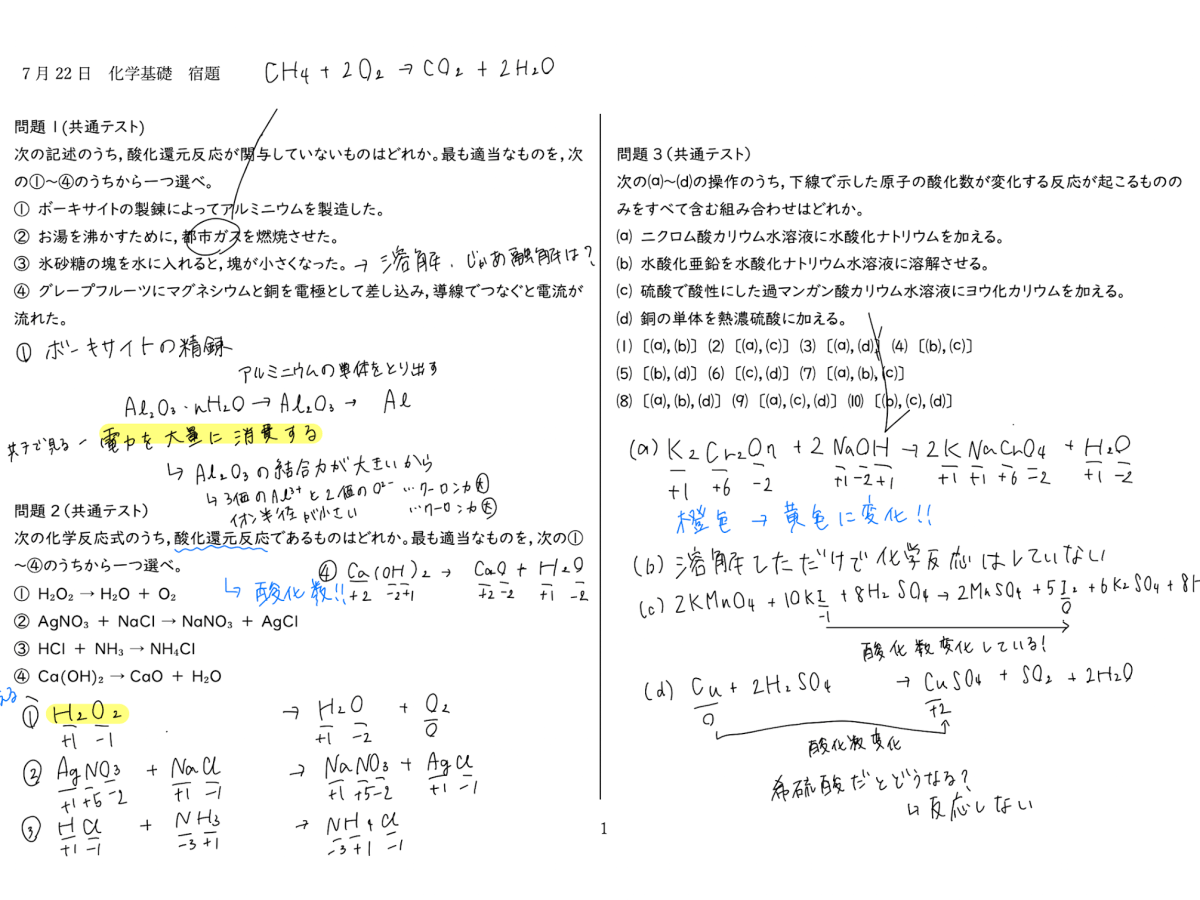 7月22日 化学基礎 宿題 CH₄ + 2O₂ → CO₂ + 2H₂O
問題1(共通テスト)
次の記述のうち,酸化還元反応が関与していないものはどれか。最も適当なものを,次
の①~④のうちから一つ選べ。
① ボーキサイトの製錬によってアルミニウムを製造した。
② お湯を沸かすために,都市ガスを燃焼させた。
③ 氷砂糖の塊を水に入れると,塊が小さくなった。→ 溶解.じゃあ融解は?
④ グレープフルーツにマグネシウムと銅を電極として差し込み,導線でつなぐと電流が
流れた。
① ボーキサイトの精錬
アルミニウムの単体をとり出す
Al₂O₃・nH₂O → Al₂O₃ → Al
共テで見る - 電力を大量に消費する
↳ Al₂O₃の結合力が大きいから
↳ 3価のAl³⁺と2価のO²⁻ …クーロン力大
イオン半径が小さい …クーロン力大
問題2(共通テスト)
次の化学反応式のうち,酸化還元反応であるものはどれか。最も適当なものを,次の①
~④のうちから一つ選べ。
↳ 酸化数!!
④ Ca(OH)₂ → CaO + H₂O
+2 -2+1 +2 -2 +1 -2
① H₂O₂ → H₂O + O₂
② AgNO₃ + NaCl → NaNO₃ + AgCl
③ HCl + NH₃ → NH₄Cl
④ Ca(OH)₂ → CaO + H₂O
① H₂O₂ → H₂O + O₂
+1 -1 +1 -2 0
② AgNO₃ + NaCl → NaNO₃ + AgCl
+1 +5 -2 +1 -1 +1 +5 -2 +1 -1
③ HCl + NH₃ → NH₄Cl
+1 -1 -3 +1 -3 +1 -1
問題3(共通テスト)
次の(a)~(d)の操作のうち,下線で示した原子の酸化数が変化する反応が起こるものの
みをすべて含む組み合わせはどれか。
(a) ニクロム酸カリウム水溶液に水酸化ナトリウムを加える。
(b) 水酸化亜鉛を水酸化ナトリウム水溶液に溶解させる。
(c) 硫酸で酸性にした過マンガン酸カリウム水溶液にヨウ化カリウムを加える。
(d) 銅の単体を熱濃硫酸に加える。
(1) [(a),(b)] (2) [(a),(c)] (3) [(a),(d)] (4) [(b),(c)]
(5) [(b),(d)] (6) [(c),(d)] (7) [(a),(b),(c)]
(8) [(a),(b),(d)] (9) [(a),(c),(d)] (10) [(b),(c),(d)]
(a) K₂Cr₂O₇ + 2NaOH → 2KNaCrO₄ + H₂O
+1 +6 -2 +1 -2 +1 +1 +1 +6 -2 +1 -2
橙色 → 黄色に変化!!
(b) 溶解しただけで化学反応はしていない
(c) 2KMnO₄ + 10KI + 8H₂SO₄ → 2MnSO₄ + 5I₂ + 6K₂SO₄ + 8H
-1 0
酸化数変化している!
(d) Cu + 2H₂SO₄ → CuSO₄ + SO₂ + 2H₂O
0 +2
酸化数変化
希硫酸だとどうなる?
↳ 反応しない
1